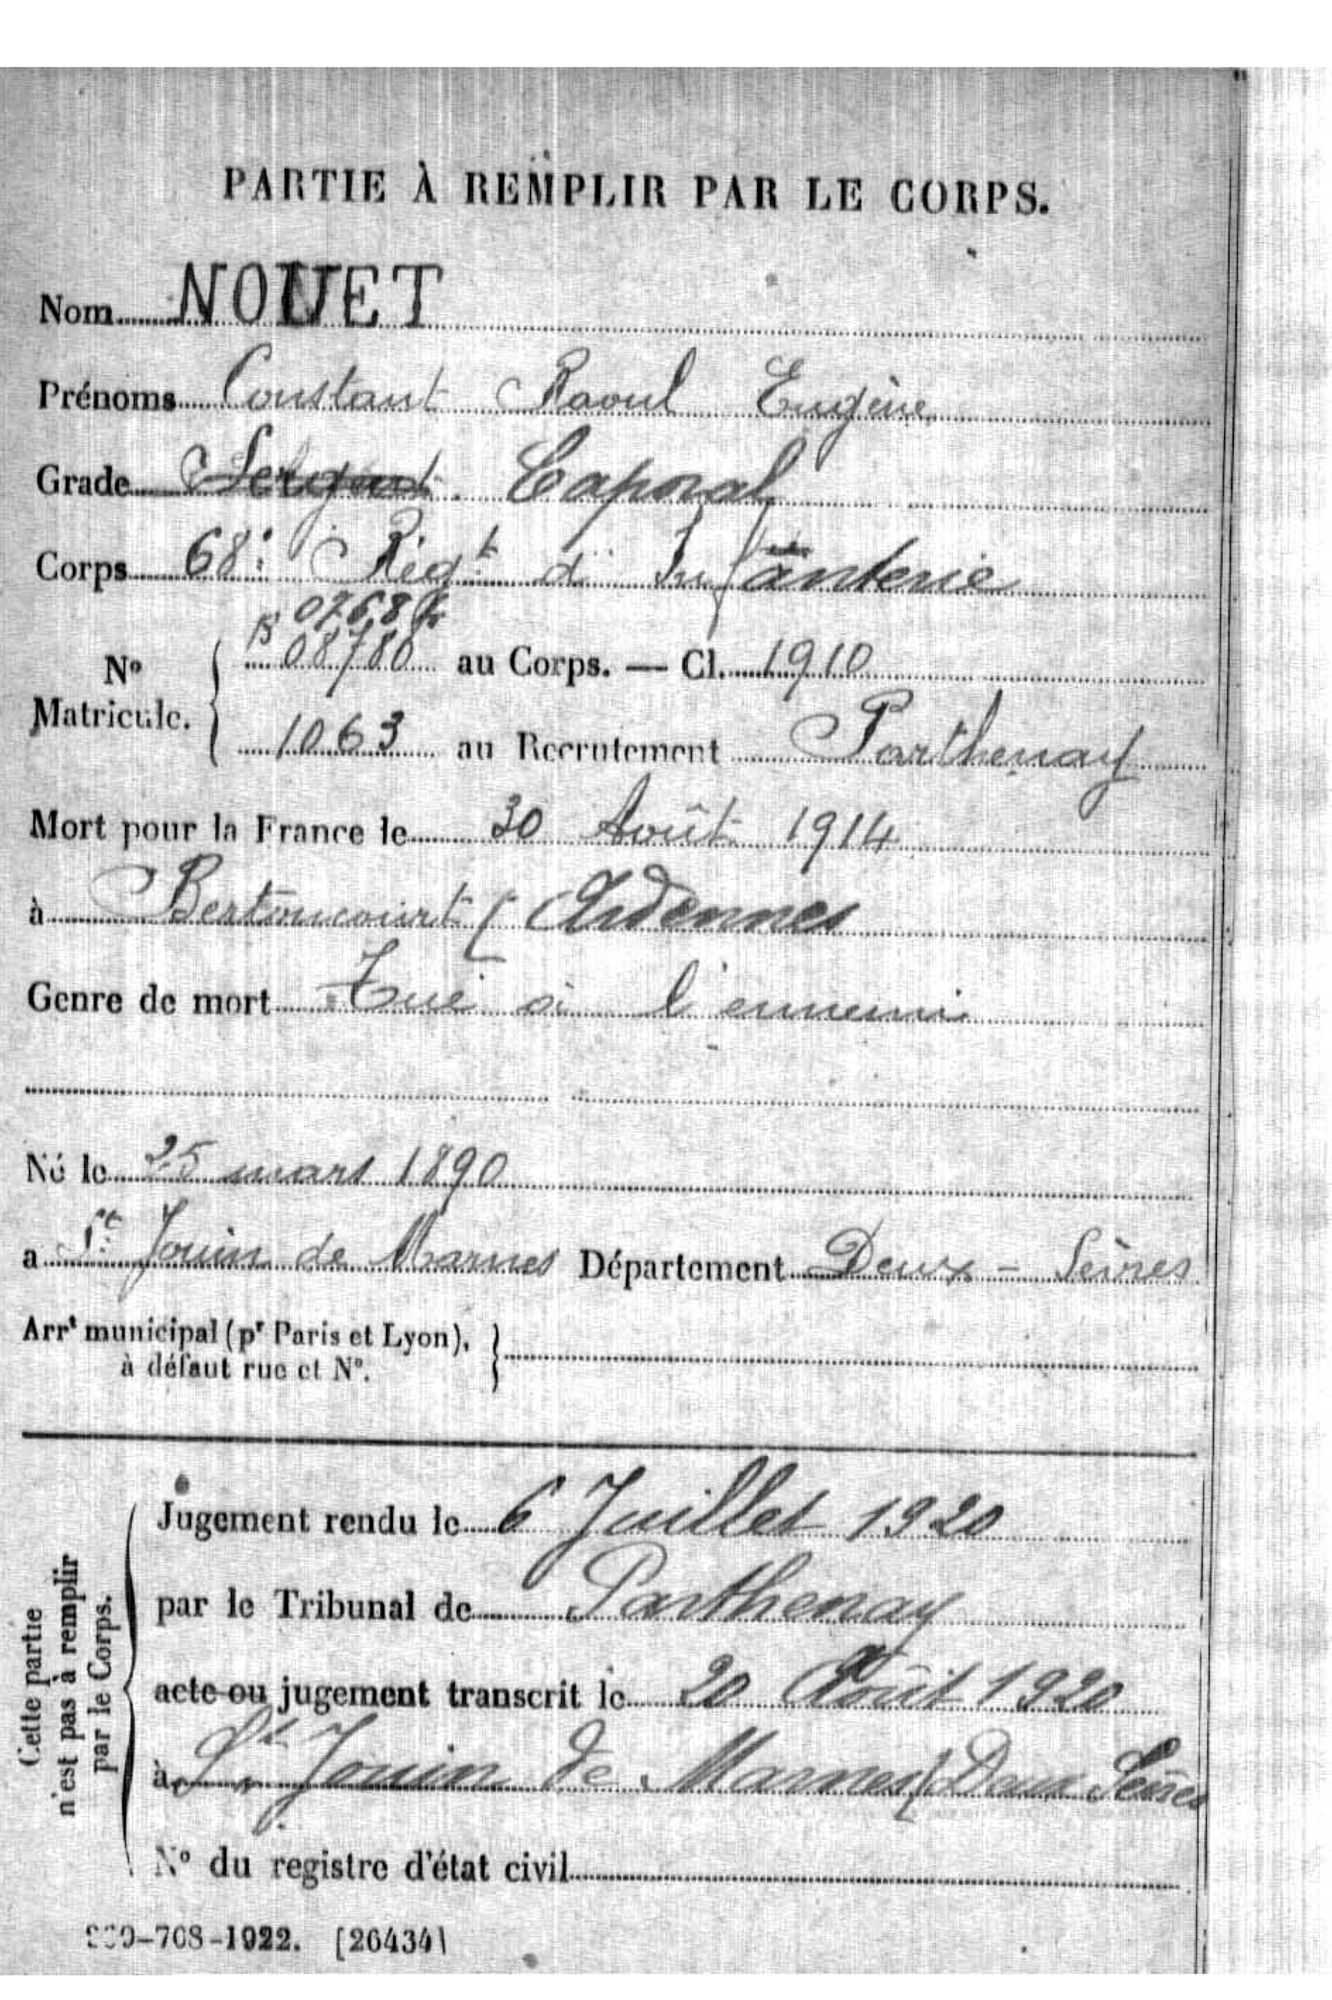 PARTIE À REMPLIR PAR LE CORPS.
Nom NOUET
Prénoms Constant Raoul Eugène
Grade Sergent. Caporal
Corps 68e Régt d'Infanterie
0768
08780 au Corps. — Cl. 1910
No Matricule.
1063 au Recrutement Parthenay
Mort pour la France le 30 Août 1914
à Bertoncourt (Ardennes
Genre de mort Tué à l'ennemi
Né le 25 mars 1890
a St Jouin de Marnes Département Deux-Sèvres
Arrt municipal (pr Paris et Lyon),
à défaut rue et No.
Jugement rendu le 6 Juillet 1920
par le Tribunal de Parthenay
acte ou jugement transcrit le 20 Août 1920
à St Jouin de Marnes (Deux Sèvres
No du registre d'état civil
Cette partie
n'est pas à remplir
par le Corps.
-708-1922. [26434]